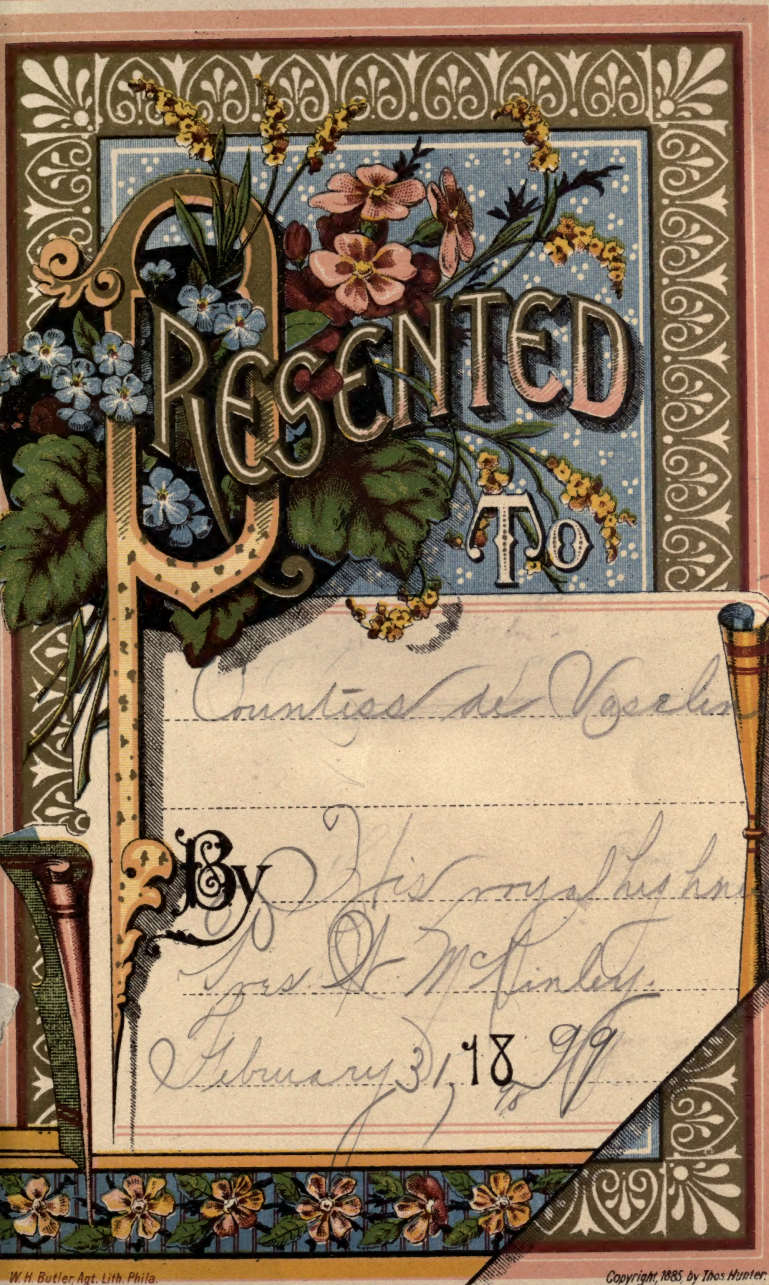 PRESENTED
To
Countiss de Vaselin
By His royal highnes
Pres W. McKinley.
February 31, 1899
W. H. Butler, Agt. Lith. Phila.
Copyright, 1885, by Thos. Hunter.